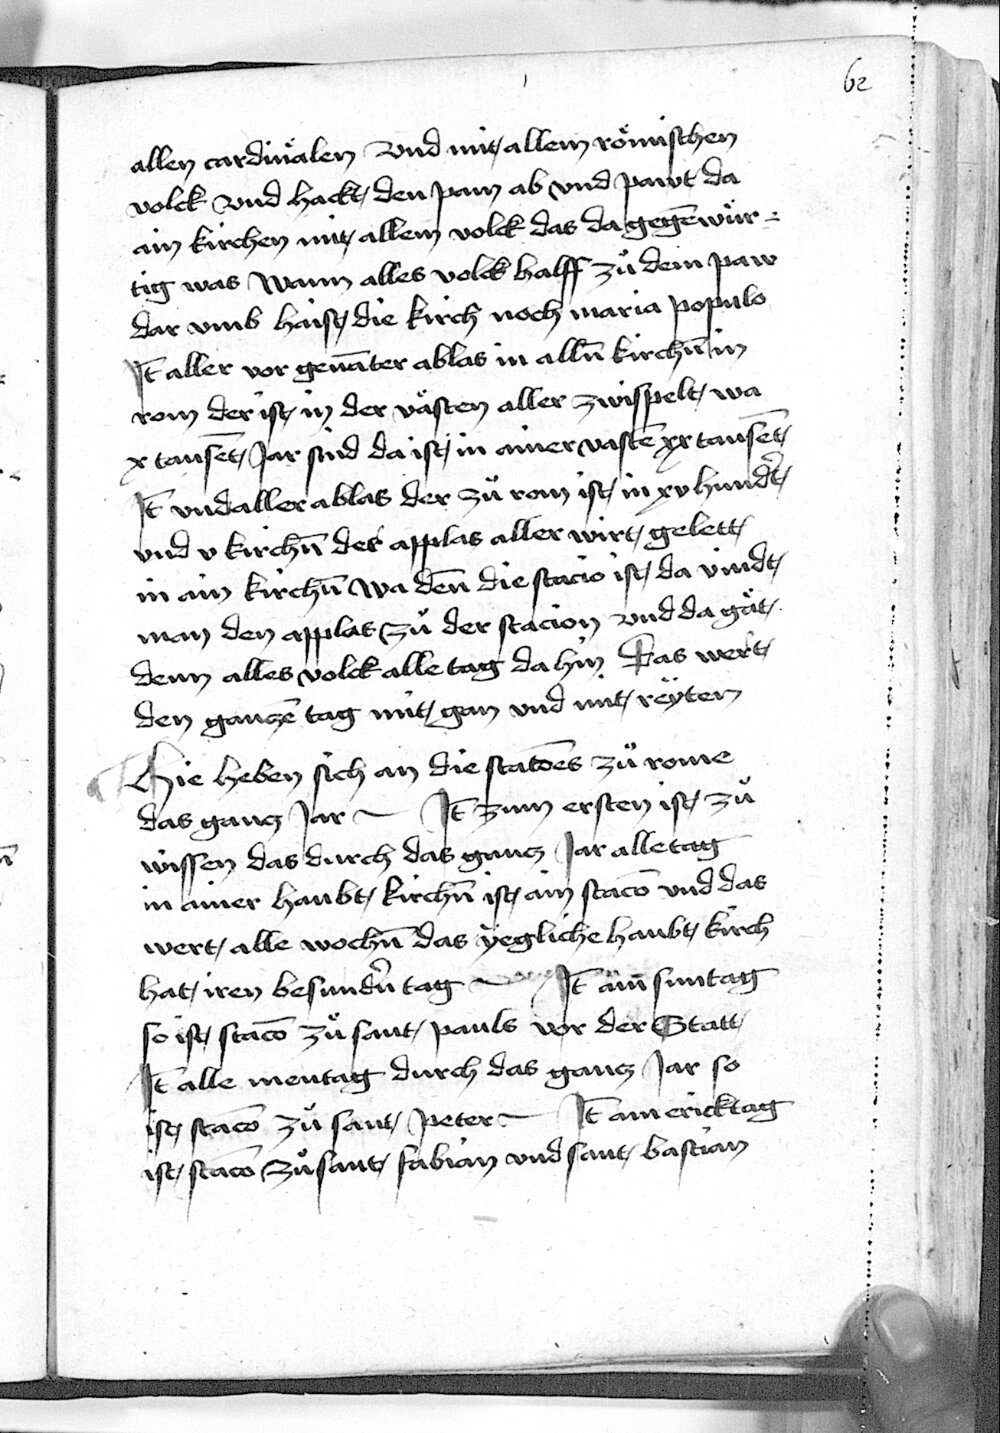 62
allen cardinälen vnd mit allem römischen
volck vnd hackt den pam ab vnd pawt da
ain kirchen mit allem volck das da gegēwür-
tig was Wann alles volck halff zů dem paw
dar vmb haist die kirch noch maria populo
Jt̄ aller vor genāter ablas in alln̄ kirchn̄ in
rom der ist in der västen aller zwispelt wa
x tausēt Jar sind da ist in ainer vastē xx tausēt
Jt̄ vnd aller ablas der zů rom ist in xv hundt̄
vnd v kirchn̄ der applas aller wirt gelett
in ain kirchn̄ Wa den̄ die stacio ist da vindt
man den applas zů der stacion vnd da gät
denn alles volck alle tag da hin Das wert
den ganczē tag mit gan vnd mit reÿten
Hie heben sich an die statōes zů rome
das gancz Jar Jt̄ zum ersten ist zů
wissen das durch das gancz Jar alle tag
in ainer haubt kirchn̄ ist ain stacō vnd das
wert alle wochn̄ das ÿegliche haubt kirch
hat iren besundn̄ tag Jt̄ am̄ suntag
so ist stacō zů sant pauls vor der Statt
Jt̄ alle mentag durch das gancz Jar so
ist stacō zů sant peter Jt̄ am ericktag
ist stacō zů sant fabian vnd sant bastian